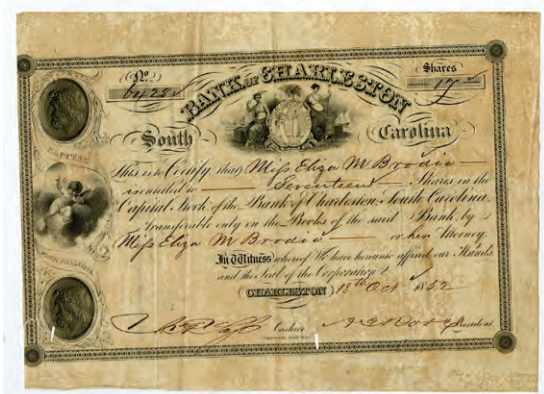 No. Shares
17
BANK OF CHARLESTON
South Carolina
CAPITAL
This is to Certify that Miss Eliza M Brodie
is entitled to Seventeen Shares in the
Capital Stock of the Bank of Charleston, South Carolina.
Transferable only on the Books of the said Bank, by
Miss Eliza M Brodie or her Attorney.
In Witness whereof We have hereunto affixed our Hands,
and the Seal of the Corporation
CHARLESTON 18th Oct 1852
Cashier President